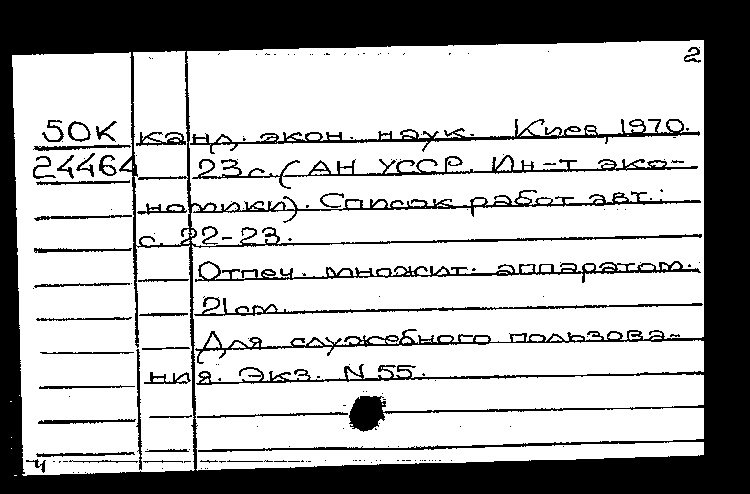 2
50К канд. экон. наук. Киев, 1970.
24464 23с. (АН УССР. Ин-т эко-
номики). Список работ авт.:
с. 22-23.
Отпеч. множит. аппаратом.
21см.
Для служебного пользова-
ния. Экз. N 55.
4